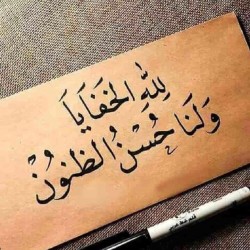 لِلّٰهِ الخَفَايَا
وَلَنَا حُسْنُ الظُنُوْن